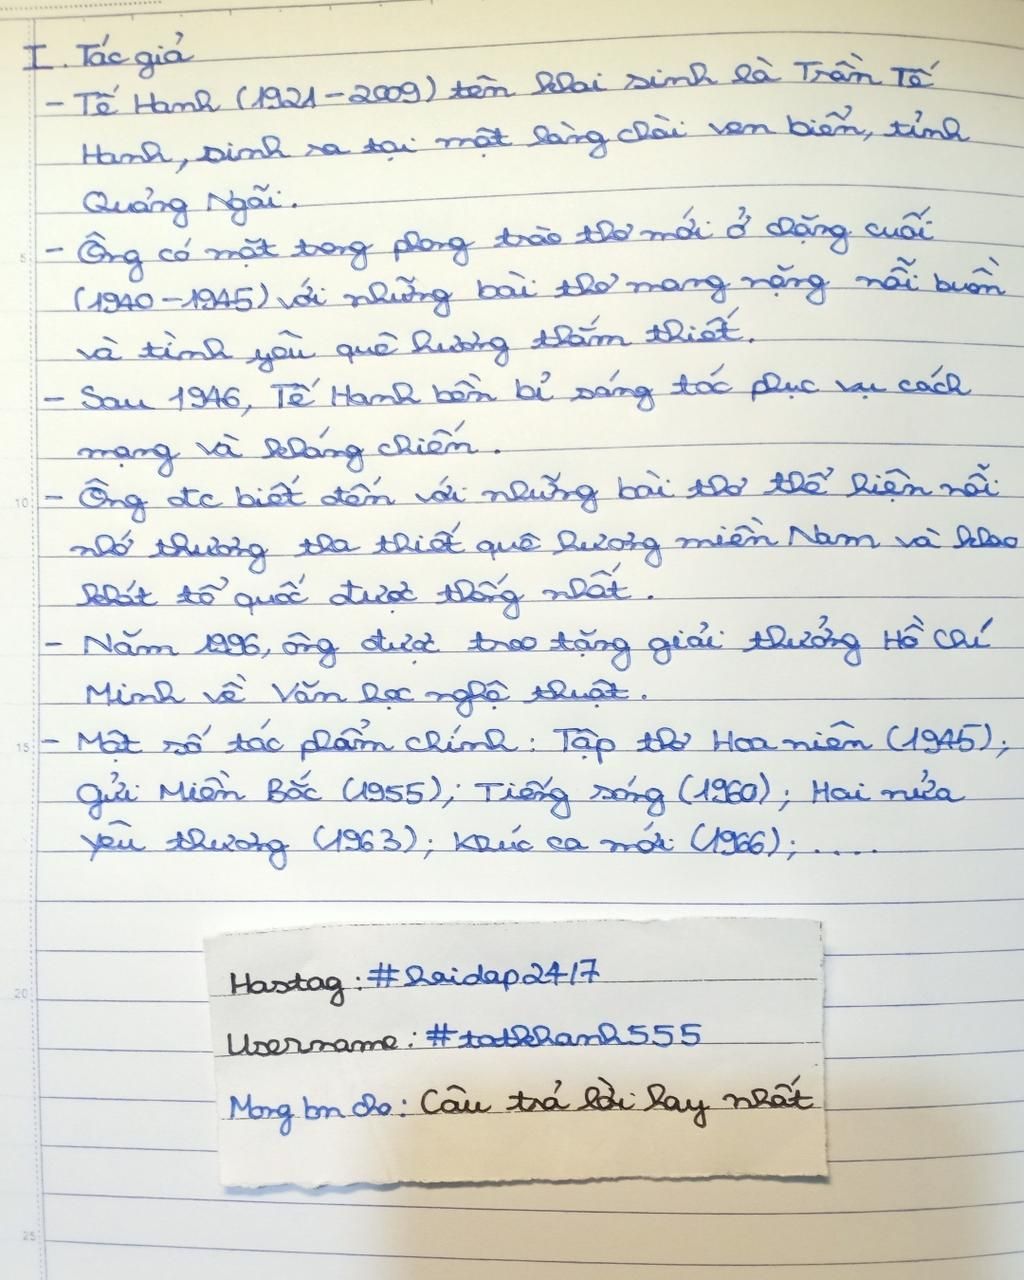 I. Tác giả
- Tế Hanh (1921-2009) tên khai sinh là Trần Tế
Hanh, sinh ra tại một làng chài ven biển, tỉnh
Quảng Ngãi.
- Ông có mặt trong phong trào thơ mới ở chặng cuối
(1940-1945) với những bài thơ mang nặng nỗi buồn
và tình yêu quê hương thắm thiết.
- Sau 1946, Tế Hanh bền bỉ sáng tác phục vụ cách
mạng và kháng chiến.
- Ông đc biết đến với những bài thơ thể hiện nỗi
nhớ thương tha thiết quê hương miền Nam và khao
khát tổ quốc được thống nhất.
- Năm 1996, ông được trao tặng giải thưởng Hồ Chí
Minh về Văn học nghệ thuật.
- Một số tác phẩm chính: Tập thơ Hoa niên (1945);
gửi Miền Bắc (1955); Tiếng sóng (1960); Hai nửa
yêu thương (1963); Khúc ca mới (1966); ....
Hastag: #hoidap247
Username: #totkhanh555
Mong bn cho: Câu trả lời hay nhất
5
10
15
20
25